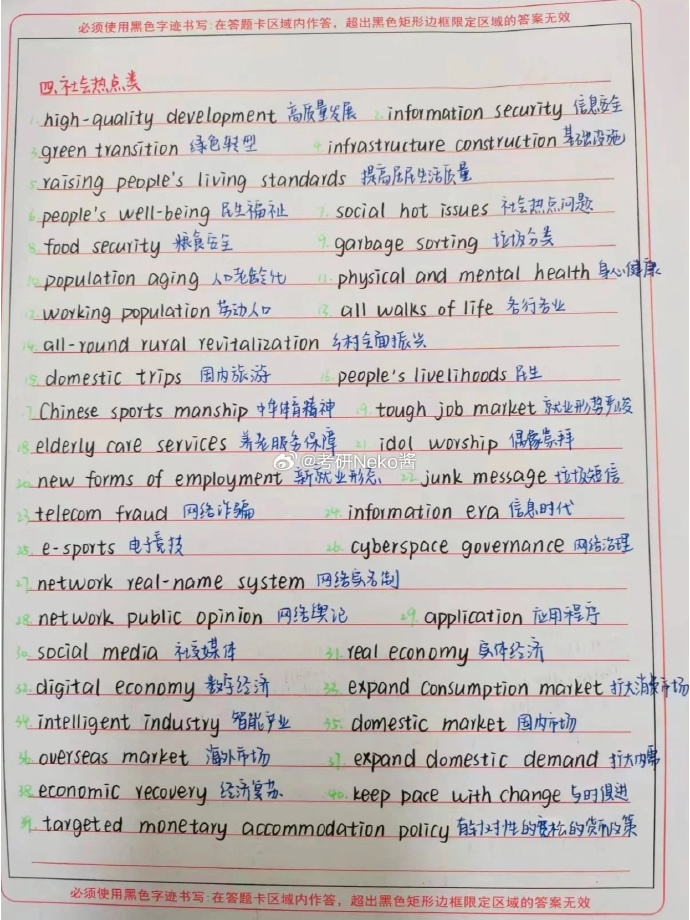 必须使用黑色字迹书写:在答题卡区域内作答，超出黑色矩形边框限定区域的答案无效
四.社会热点类
1. high-quality development 高质量发展 2. information security 信息安全
3. green transition 绿色转型 4. infrastructure construction 基础设施
5. raising people's living standards 提高居民生活质量
6. people's well-being 民生福祉 7. social hot issues 社会热点问题
8. food security 粮食安全 9. garbage sorting 垃圾分类
10. population aging 人口老龄化 11. physical and mental health 身心健康
12. working population 劳动人口 13. all walks of life 各行各业
14. all-round rural revitalization 乡村全面振兴
15. domestic trips 国内旅游 16. people's livelihoods 民生
17. Chinese sports manship 中华体育精神 19. tough job market 就业形势严峻
18. elderly care services 养老服务保障 21. idol worship 偶像崇拜
20. new forms of employment 新就业形态 22. junk message 垃圾短信
@考研Neko酱
23. telecom fraud 网络诈骗 24. information era 信息时代
25. e-sports 电子竞技 26. cyberspace governance 网络治理
27. network real-name system 网络实名制
28. network public opinion 网络舆论 29. application 应用程序
30. social media 社交媒体 31. real economy 实体经济
32. digital economy 数字经济 33. expand consumption market 扩大消费市场
34. intelligent industry 智能产业 35. domestic market 国内市场
36. overseas market 海外市场 37. expand domestic demand 扩大内需
38. economic recovery 经济复苏 40. keep pace with change 与时俱进
39. targeted monetary accommodation policy 有针对性的宽松的货币政策
必须使用黑色字迹书写:在答题卡区域内作答，超出黑色矩形边框限定区域的答案无效